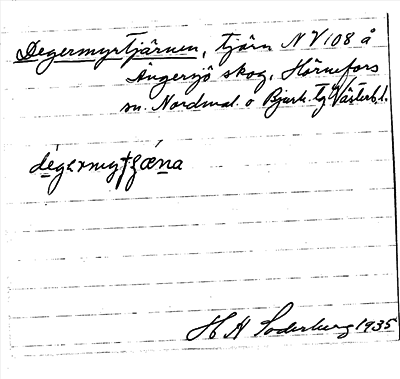 Degermyrtjärnen, tjärn NV 108 å
Ängersjö skog, Hörnefors
sn. Nordmal. o Bjurh. tg Västerb. l.
H A Söderberg 1935